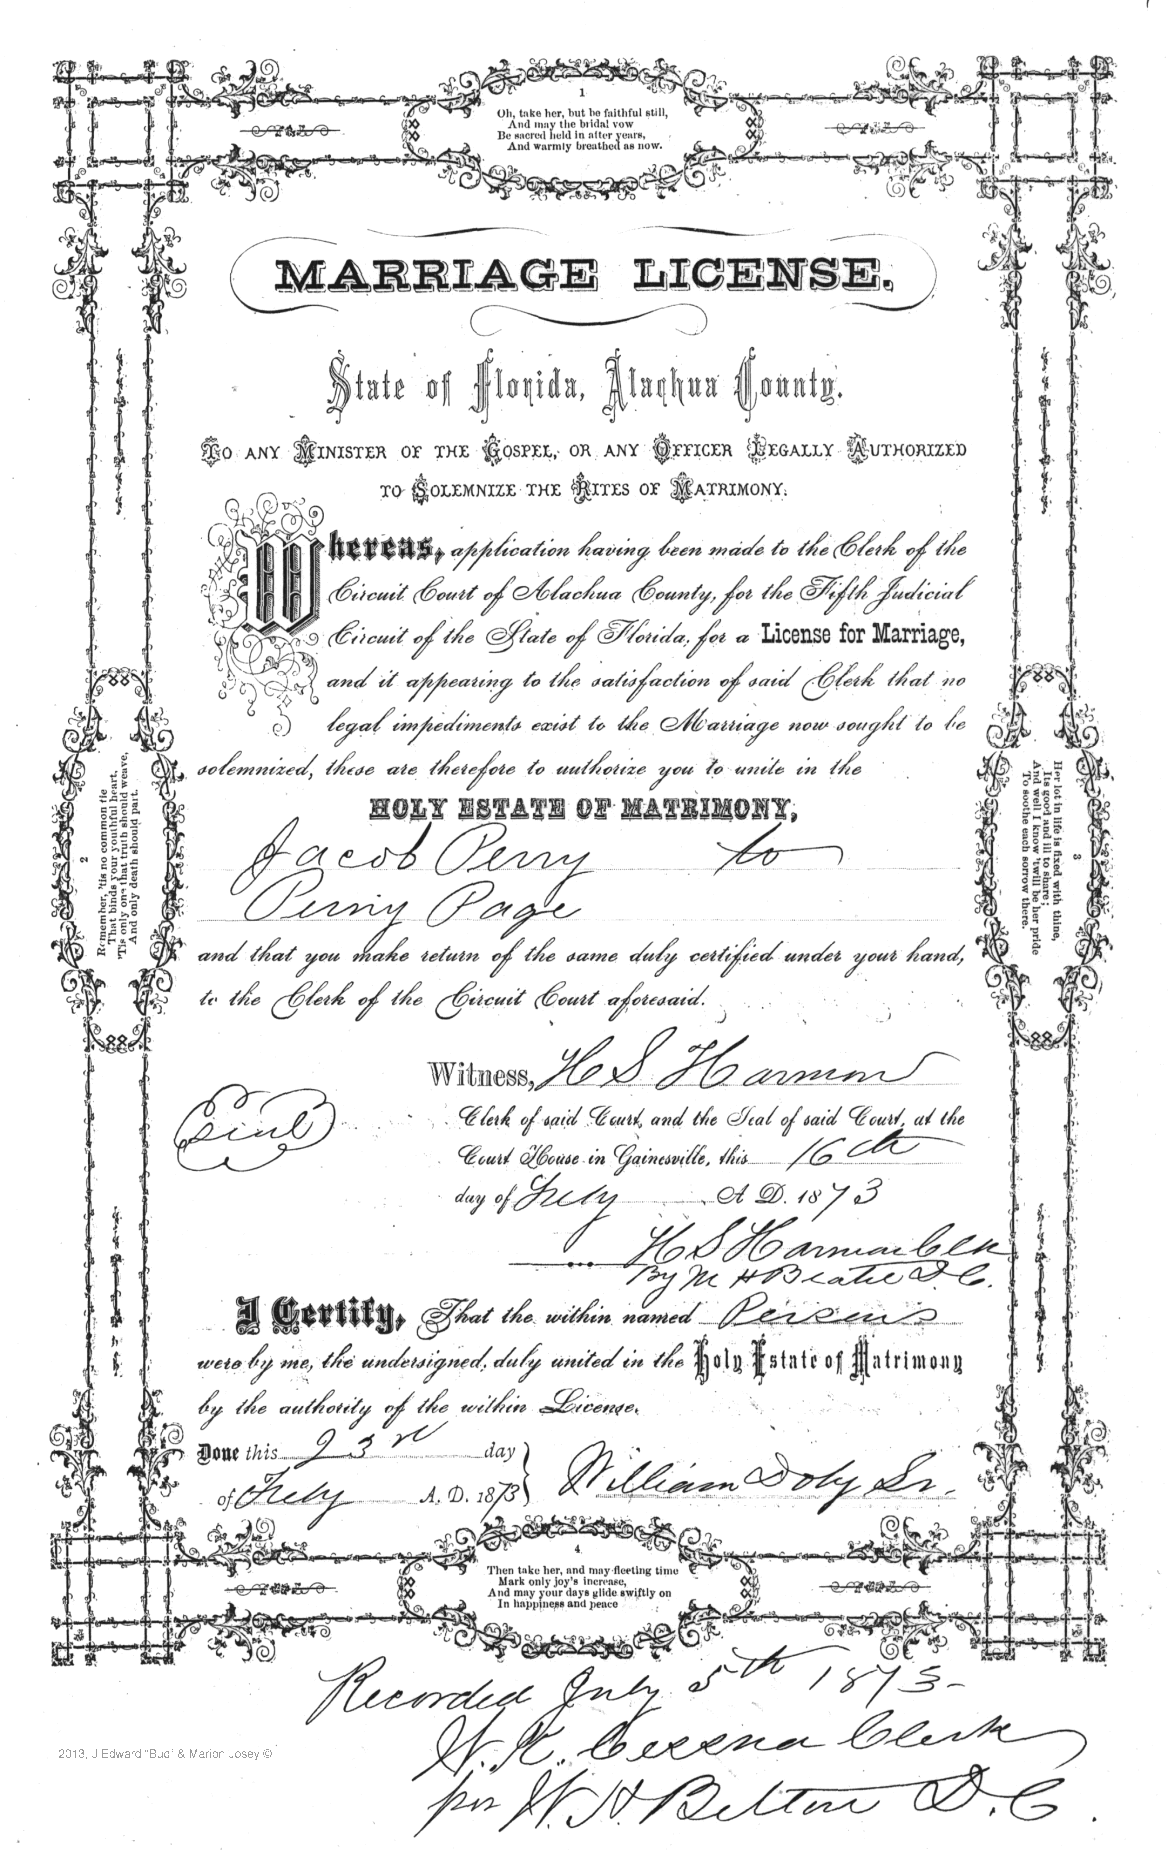 1
Oh, take her, but be faithful still,
And may the bridal vow
Be sacred held in after years,
And warmly breathed as now.
MARRIAGE LICENSE.
State of Florida, Alachua County.
TO ANY MINISTER OF THE GOSPEL, OR ANY OFFICER LEGALLY AUTHORIZED
TO SOLEMNIZE THE RITES OF MATRIMONY:
Whereas, application having been made to the Clerk of the
Circuit Court of Alachua County, for the Fifth Judicial
Circuit of the State of Florida, for a License for Marriage,
and it appearing to the satisfaction of said Clerk that no
legal impediments exist to the Marriage now sought to be
solemnized, these are therefore to authorize you to unite in the
HOLY ESTATE OF MATRIMONY,
Jacob Perry to
Penny Page
and that you make return of the same duly certified under your hand,
to the Clerk of the Circuit Court aforesaid.
2
Remember, 'tis no common tie
That binds your youthful heart,
'Tis only one that truth should weave,
And only death should part.
3
Her lot in life is fixed with thine,
Its good and ill to share;
And well I know 'twill be her pride
To soothe each sorrow there.
Witness, H S Harmon
Clerk of said Court, and the Seal of said Court, at the
Court House in Gainesville, this 16th
day of July A. D. 1873
Seal
H S Harmon Clk
By M H Beatie D C.
I Certify, That the within named Persons
were by me, the undersigned, duly united in the Holy Estate of Matrimony
by the authority of the within License.
Done this 23rd day
of July A. D. 1873
William Doby Sr.
4.
Then take her, and may fleeting time
Mark only joy's increase,
And may your days glide swiftly on
In happiness and peace
Recorded July 5th 1873-
W. K. Cessna Clerk
per W. H. Belton D. C.
2013, J Edward "Bud" & Marion Josey ©